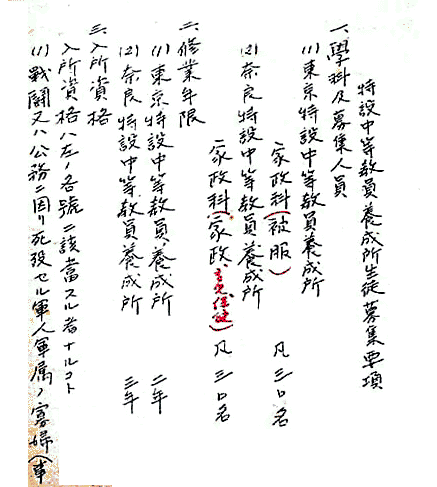 特設中等教員養成所生徒募集要項
一、學科及募集人員
(1)東京特設中等教員養成所
家政科(被服) 凡三〇名
(2)奈良特設中等教員養成所
家政科(家政、育児保健) 凡三〇名
二、修業年限
(1)東京特設中等教員養成所 二年
(2)奈良特設中等教員養成所 三年
三、入所資格
入所資格ハ左ノ各號ニ該當スル者ナルコト
(1)戰鬪又ハ公務ニ因リ死歿セル軍人軍属ノ寡婦(軍